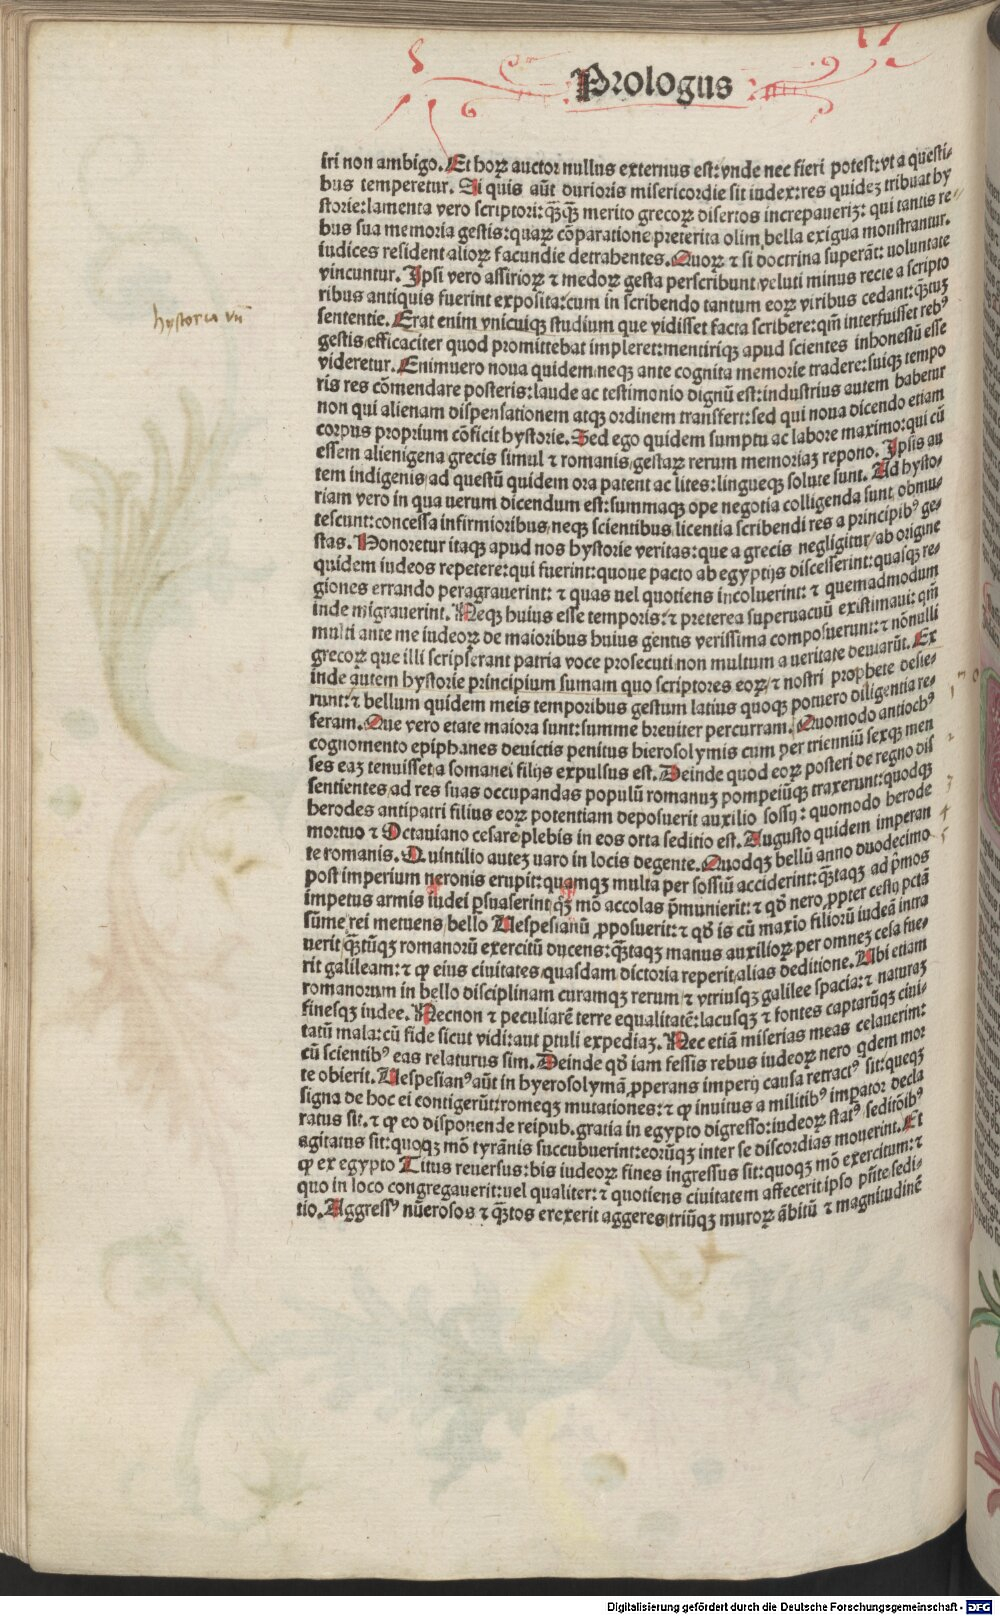 Prologus
iri non ambigo. Et horꝝ auctor nullus externus est: vnde nec fieri potest: vt a questi-
bus temperetur. Si quis aūt durioris misericordie sit iudex: res quideꝫ tribuat hy
storie: lamenta vero scriptori: qꝫqꝫ merito grecoꝝ disertos increpauerim: qui tantis re
bus sua memoria gestis: quaꝝ cōparatione preterita olim bella exigua monstrantur.
iudices resident alioꝝ facundie detrahentes. Quoꝝ ⁊ si doctrina superāt: uoluntate
vincuntur. Ipsi vero assirioꝝ ⁊ medoꝝ gesta perscribunt veluti minus recte a scripto
ribus antiquis fuerint exposita: cum in scribendo tantum eoꝝ viribus cedant: qꝫtuꝫ
sententie. Erat enim vnicuiqꝫ studium que vidisset facta scribere: qm̄ interfuisset rebꝰ
gestis efficaciter quod promittebat impleret: mentiriqꝫ apud scientes inhonestū esse
videretur. Enimuero noua quidem neqꝫ ante cognita memorie tradere: suiqꝫ tempo
ris res cōmendare posteris: laude ac testimonio dignū est: industrius autem habetur
non qui alienam dispensationem atqꝫ ordinem transfert: sed qui noua dicendo etiam
corpus proprium cōficit hystorie. Sed ego quidem sumptu ac labore maximo: qui cū
essem alienigena grecis simul ⁊ romanis gestaꝝ rerum memoriaꝫ repono. Ipsis au
tem indigenis ad questū quidem ora patent ac lites: lingueqꝫ solute sunt. Ad hysto-
riam vero in qua uerum dicendum est: summaqꝫ ope negotia colligenda sunt obmu-
tescunt: concessa infirmioribus neqꝫ scientibus licentia scribendi res a principibꝰ ge-
stas. Honoretur itaqꝫ apud nos hystorie veritas: que a grecis negligitur ab origine
quidem iudeos repetere: qui fuerint: quoue pacto ab egyptijs discesserint: quasqꝫ re-
giones errando peragrauerint: ⁊ quas uel quotiens incoluerint: ⁊ quemadmodum
inde migrauerint. Neqꝫ huius esse temporis: ⁊ preterea superuacuū existimaui: qm̄
multi ante me iudeoꝝ de maioribus huius gentis verissima composuerunt: ⁊ nōnulli
grecoꝝ que illi scripserant patria voce prosecuti non multum a ueritate deuiarūt. Ex
inde autem hystorie principium sumam quo scriptores eoꝝ ⁊ nostri prophete desie-
runt: ⁊ bellum quidem meis temporibus gestum latius quoqꝫ potuero diligentia re-
feram. Que vero etate maiora sunt: summe breuiter percurram. Quomodo antiochꝰ
cognomento epiphanes deuictis penitus hierosolymis cum per trienniū sexqꝫ men
ses eaꝫ tenuisset a somanei filijs expulsus est. Deinde quod eoꝝ posteri de regno dis
sentientes ad res suas occupandas populū romanuꝫ pompeiūqꝫ traxerunt: quodqꝫ
herodes antipatri filius eoꝝ potentiam deposuerit auxilio sossij: quomodo herode
mortuo ⁊ Octauiano cesare plebis in eos orta seditio est. Augusto quidem imperan
te romanis. Quintilio auteꝫ uaro in locis degente. Quodqꝫ bellū anno duodecimo
post imperium neronis erupit: quamqꝫ multa per sossiū acciderint: qꝫtaqꝫ ad p̄mos
impetus armis iudei p̱suaserint qꝫ mō accolas p̄munierīt: ⁊ qđ nero ꝓpter cestij pctā
sūme rei metuens bello Uespesianū ꝓposuerit: ⁊ qđ is cū maxīo filiorū iudeā intra
uerit qꝫtūqꝫ romanorū exercitū ducens: qꝫtaqꝫ manus auxilioꝝ per omneꝫ cesa fue-
rit galileam: ⁊ ꝙ eius ciuitates quasdam dictoria reperit alias deditione. Ubi etiam
romanorum in bello disciplinam curamqꝫ rerum ⁊ vtriusqꝫ galilee spacia: ⁊ naturaꝫ
finesqꝫ iudee. Necnon ⁊ peculiarē terre equalitatē: lacusqꝫ ⁊ fontes captarūqꝫ ciui-
tatū mala: cū fide sicut vidi: aut p̱tuli expediaꝫ. Nec etiā miserias meas celauerim:
cū scientibꝰ eas relaturus sim. Deinde qđ iam fessis rebus iudeoꝝ nero qdem mor
te obierit. Uespesianꝰ aūt in hyerosolymā ꝓperans imperij causa retractꝰ sit: queqꝫ
signa de hoc ei contigerūt: romeqꝫ mutationes: ⁊ ꝙ inuitus a militibꝰ imperator decla
ratus sit. ⁊ ꝙ eo disponende reipub. gratia in egypto digresso: iudeoꝝ statꝰ seditōibꝰ
agitatus sit: quoqꝫ mō tyrānis succubuerint: eorūqꝫ inter se discordias mouerint. Et
ꝙ ex egypto Titus reuersus: bis iudeoꝝ fines ingressus sit: quoqꝫ mō exercitum: ⁊
quo in loco congregauerit: uel qualiter: ⁊ quotiens ciuitatem affecerit ipso pn̄te sedi-
tio. Aggressꝰ nūerosos ⁊ qꝫtos erexerit aggeres triūqꝫ muroꝝ ābitū ⁊ magnitudinē
hystoria vn̄
Digitalisierung gefördert durch die Deutsche Forschungsgemeinschaft - DFG